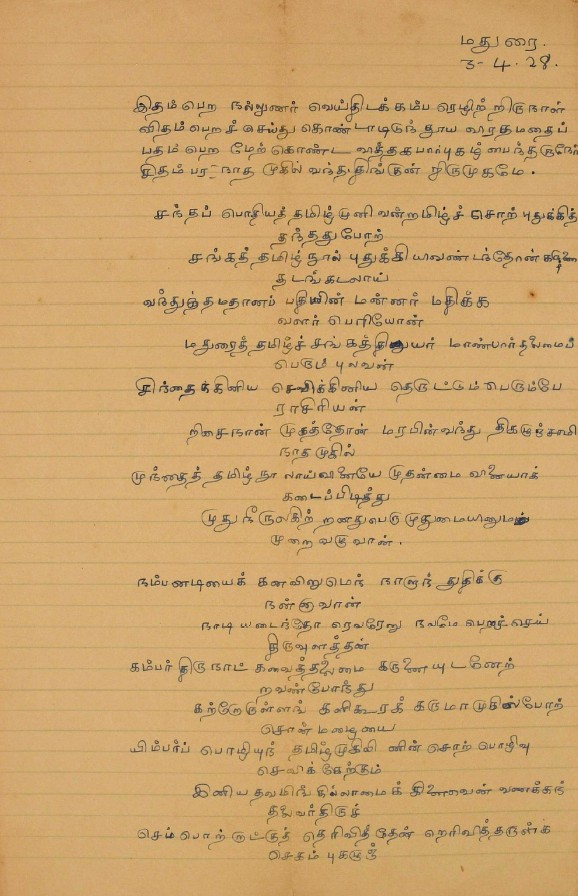 மதுரை.
3-4.28.
இதம் பெற நல்லுணர் வெய்திடக் கம்ப ரெழிற் றிருநாள்
விதம் பெறச் செய்து கொண்டாடிடுந் தூய விரதமதைப்
பதம் பெற மேற் கொண்ட வித்தக பார்புகழ் பைந்தமிழ்தேர்
இதம் பர நாத முகில் வந்த திங்குன் றிருமுகமே.
சந்தப் பொதியத் தமிழ் முனி வன்றமிழ்ச் சொற் புதுக்கித்
தந்ததுபோற்
சங்கத் தமிழ் நூல் புதுக்கியவண்
தடங்கடலாய்
வந்துந்தமதானப் பதியின் மன்னர் மதிக்க
வளர் பெரியோன்
மதுரைத் தமிழ்ச் சங்கத்தினுயர் மாண்பார் தலைமைப்
பெரும் புலவன்
சிந்தைக்கினிய செவிக்கினிய தெருட்டும் பெரும்பே
ராசிரியன்
றிசைநான் முகத்தோன் மரபின்வந்து திகழுஞ்சாமி
நாதமுகில்
முந்தைத் தமிழ் நூலாய்வினையே முதன்மை வினையாக்
கடைப்பிடித்து
முதுநீருலகிற் றனதுபெரு முதுமையினும்
முறைவருவான்.
நம்பனடியைக் கனவினுமெந் நாளுந் துதிக்கு
நன்குவான்
நாடி யடைந்தோ ரெவரேனு நலமே பெறச் செய்
திருவுளத்தன்
கம்பர் திருநாட் கவைத்தலைமை கருணையுடனேற்
றவண்போந்து
கற்றோருள்ளங் களிகூரக் கருமாமுகில்போற்
சொன்மழையை
யிம்பர்ப் பொழியுந் தமிழ்முகிலி னின்சொற் பொழிவு
செவிக் கேற்கும்
இனிய தவமிங் கில்லாமைக் கிளைவென் வணக்கந்
தலைவர்திருச்
செம்பொற் றாட்குத் தெரிவித்தேன் றெரிவித்தருள்க
செகம் புகழத்